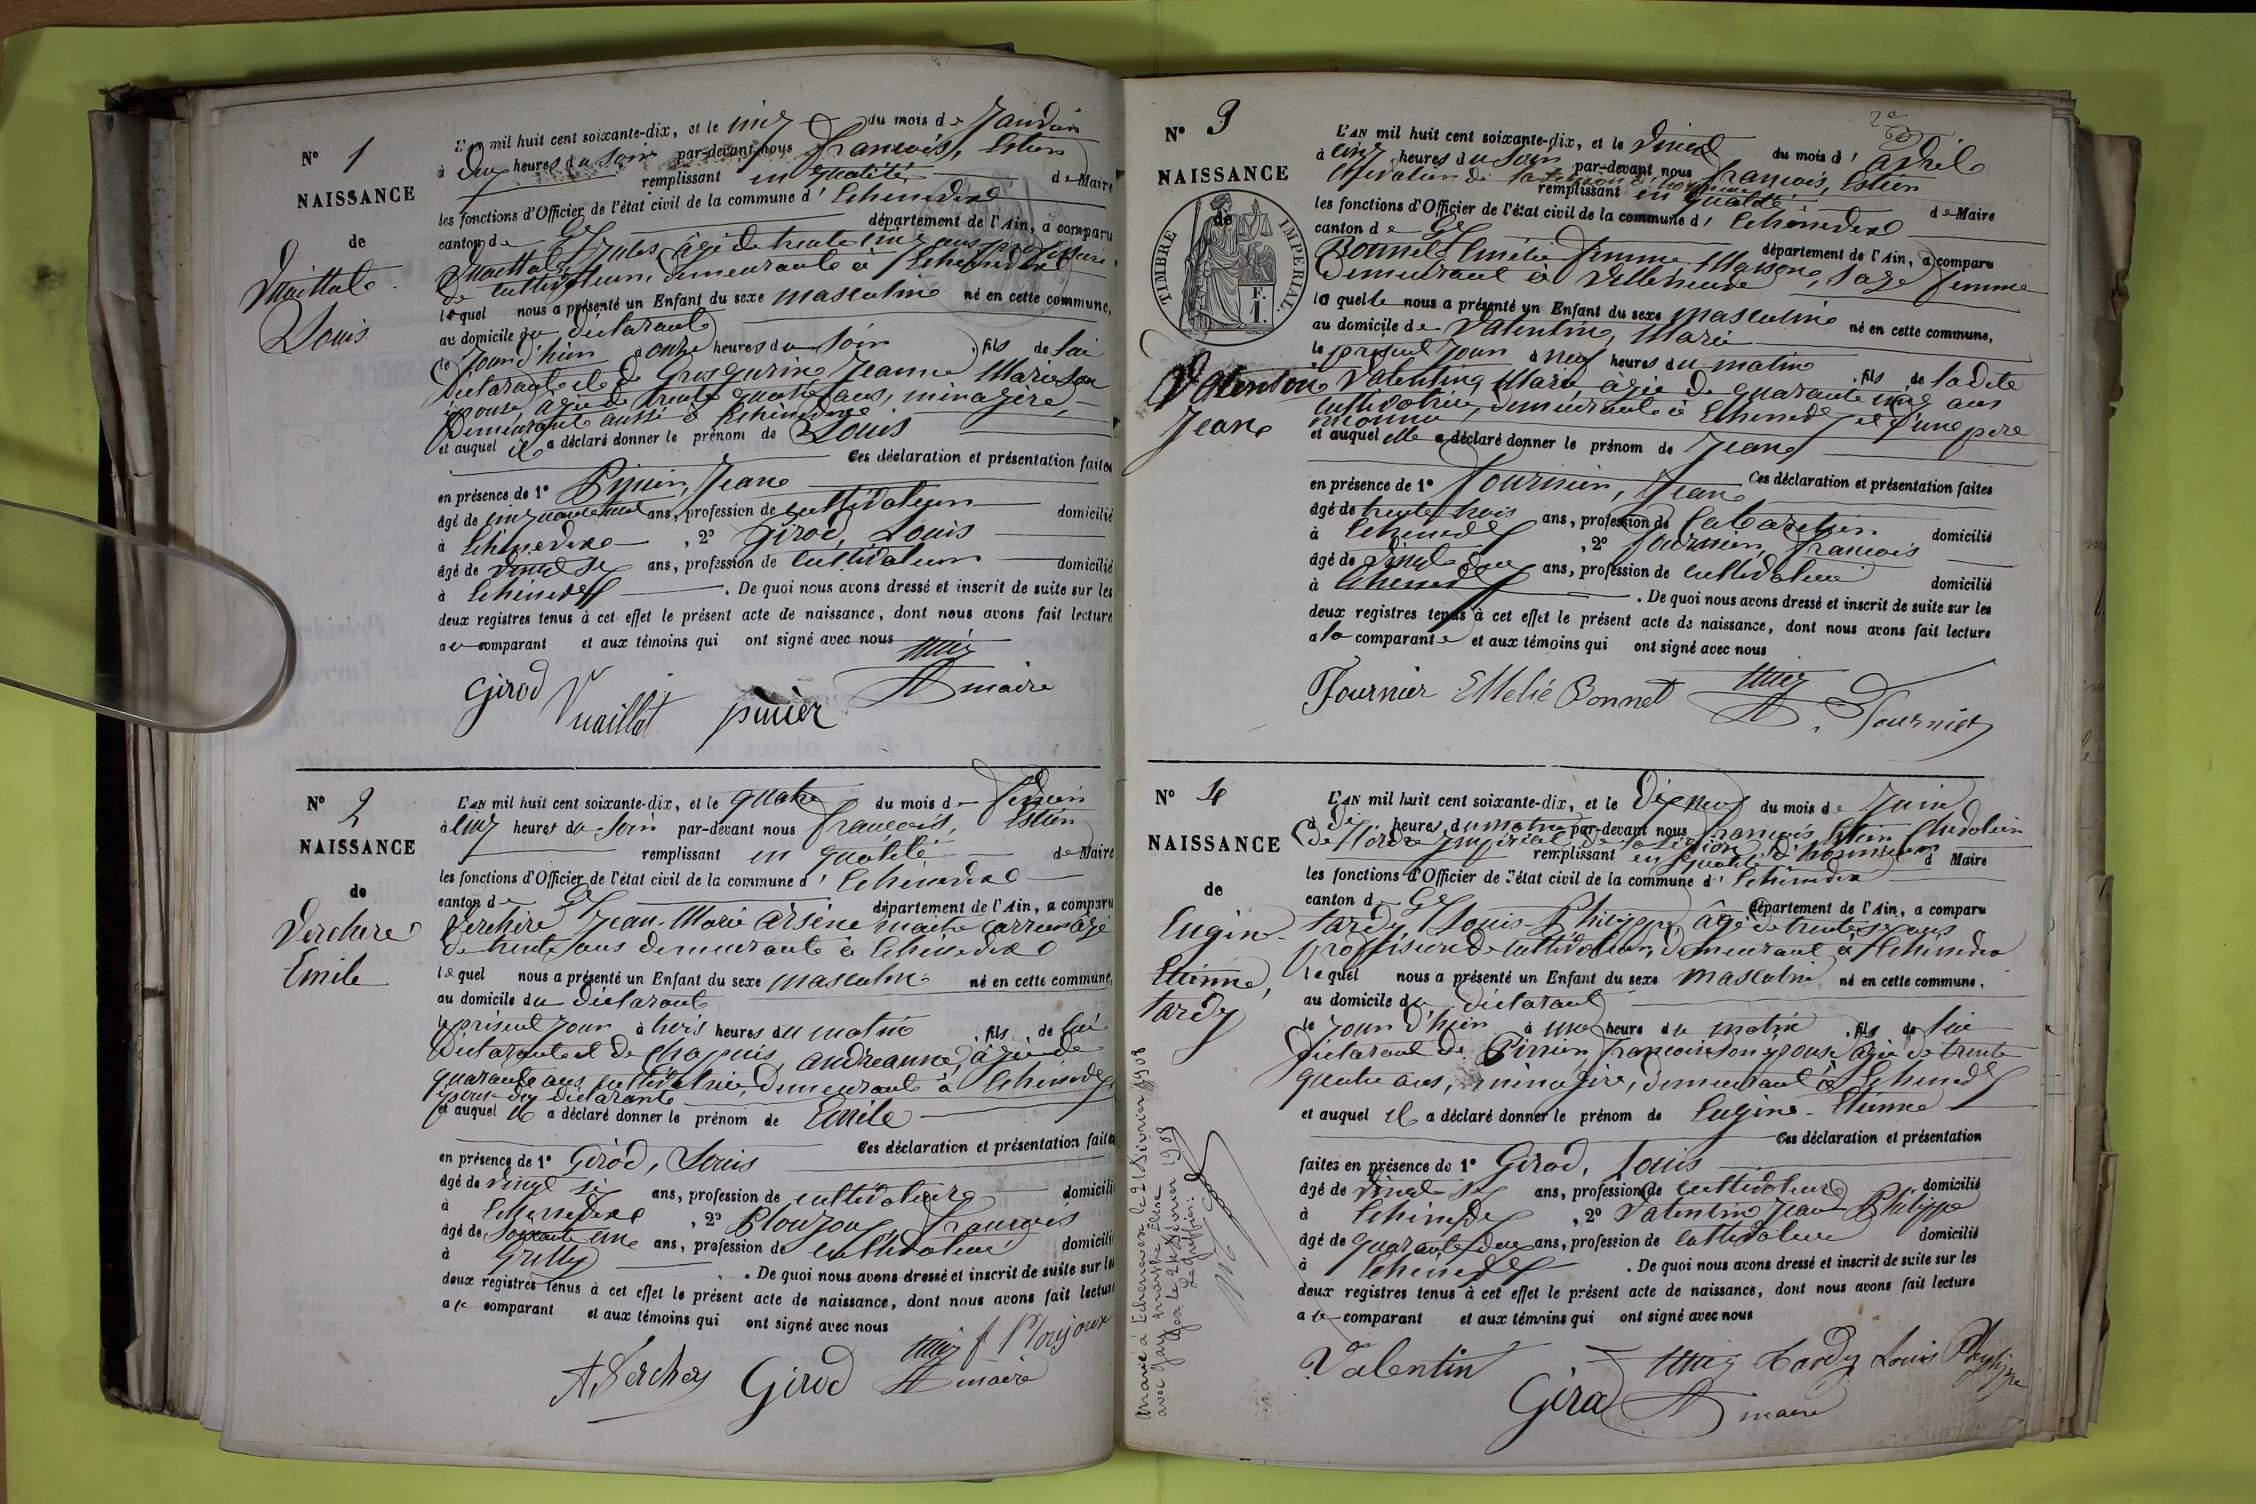 N° 1
NAISSANCE
de
Vuaillat
Louis
L'AN mil huit cent soixante-dix, et le cinq du mois de Janvier
à deux heures du soir par-devant nous François, Estien
remplissant en qualité de Maire
les fonctions d'Officier de l'état civil de la commune d' Echenevex
canton de Gex département de l'Ain, a comparu
Vuaillat Jules âgé de trente cinq ans, profession
de cultivateur, demeurant à Echenevex
lequel nous a présenté un Enfant du sexe masculin né en cette commune,
au domicile du déclarant
le jour d'hier à onze heures du soir, fils de lui
déclarant et de Grosgurin Jeanne Marie son
épouse, âgée de trente quatre ans, ménagère,
demeurant aussi à Echenevex
et auquel il a déclaré donner le prénom de Louis
Ces déclaration et présentation faites
en présence de 1° Jean
âgé de ans, profession de cultivateur domicilié
à Echenevex, 2° Girod, Louis
âgé de vingt six ans, profession de cultivateur domicilié
à Echenevex. De quoi nous avons dressé et inscrit de suite sur les
deux registres tenus à cet effet le présent acte de naissance, dont nous avons fait lecture
au comparant et aux témoins qui ont signé avec nous
Girod Vuaillat maire
N° 2
NAISSANCE
de
Verchère
Emile
L'AN mil huit cent soixante-dix, et le quatre du mois de Février
à cinq heures du soir par-devant nous François, Estien
remplissant en qualité de Maire
les fonctions d'Officier de l'état civil de la commune d' Echenevex
canton de Gex département de l'Ain, a comparu
Verchère Jean-Marie Arsène maître carrier âgé
de trente ans demeurant à Echenevex
lequel nous a présenté un Enfant du sexe masculin né en cette commune,
au domicile du déclarant
le présent jour à trois heures du matin, fils de lui
déclarant et de Chapuis, Andréanne, âgée de
quarante ans, cultivatrice, demeurant à Echenevex
épouse du déclarant
et auquel il a déclaré donner le prénom de Emile
Ces déclaration et présentation faites
en présence de 1° Girod, Louis
âgé de vingt six ans, profession de cultivateur domicilié
à Echenevex, 2° Ploujoux, François
âgé de soixante ans, profession de cultivateur domicilié
à Grilly. De quoi nous avons dressé et inscrit de suite sur les
deux registres tenus à cet effet le présent acte de naissance, dont nous avons fait lecture
au comparant et aux témoins qui ont signé avec nous
f Ploujoux
A Verchere Girod maire
N° 3
NAISSANCE
de
TIMBRE IMPERIAL.
Valentin
Jean
L'AN mil huit cent soixante-dix, et le vingt du mois d' avril
à cinq heures du soir par-devant nous François, Estien
chevalier de la légion d'honneur remplissant en qualité de Maire
les fonctions d'Officier de l'état civil de la commune d' Echenevex
canton de Gex département de l'Ain, a comparu
Bonnet Emélie femme Masson, sage femme
demeurant à
laquelle nous a présenté un Enfant du sexe masculin né en cette commune,
au domicile de Valentin, Marie
le présent jour à neuf heures du matin, fils de ladite
Valentin Marie âgée de quarante cinq ans
cultivatrice, demeurant à Echenevex et d'un père
inconnu
et auquel elle a déclaré donner le prénom de Jean
Ces déclaration et présentation faites
en présence de 1° Fournier, Jean
âgé de trente trois ans, profession de cabaretier domicilié
à Echenevex, 2° Fournier, François
âgé de vingt deux ans, profession de cultivateur domicilié
à Echenevex. De quoi nous avons dressé et inscrit de suite sur les
deux registres tenus à cet effet le présent acte de naissance, dont nous avons fait lecture
a la comparante et aux témoins qui ont signé avec nous
Fournier EMelié Bonnet Fournier
N° 4
NAISSANCE
de
Eugène-
Etienne,
Tardy
L'AN mil huit cent soixante-dix, et le dix neuf du mois de Juin
à dix heures du matin par-devant nous François, Estien Chevalier
de l'Ordre Impérial de la Légion d'honneur
remplissant en qualité d Maire
les fonctions d'Officier de l'état civil de la commune d' Echenevex
canton d Gex département de l'Ain, a comparu
Tardy, Louis-Philippe, âgé de trente six ans
profession de cultivateur, demeurant à Echenevex
lequel nous a présenté un Enfant du sexe masculin né en cette commune,
au domicile du déclarant
le jour d'hier à une heure du matin, fils de lui
déclarant de Françoise son épouse âgée de trente
quatre ans, ménagère, demeurant à Echenevex
et auquel il a déclaré donner le prénom de Eugène-Etienne
Ces déclaration et présentation
faites en présence de 1° Girod, Louis
âgé de vingt six ans, profession de cultivateur domicilié
à Echenevex, 2° Valentin Jean Philippe
âgé de quarante deux ans, profession de cultivateur domicilié
à Echenevex. De quoi nous avons dressé et inscrit de suite sur les
deux registres tenus à cet effet le présent acte de naissance, dont nous avons fait lecture
au comparant et aux témoins qui ont signé avec nous
Valentin Tardy Louis Philippe
Girod maire
Marié à Echenevex le 21 Février 1908
avec Gay Marthe Elise
Gex le 24 Février 1908
Le Greffier: